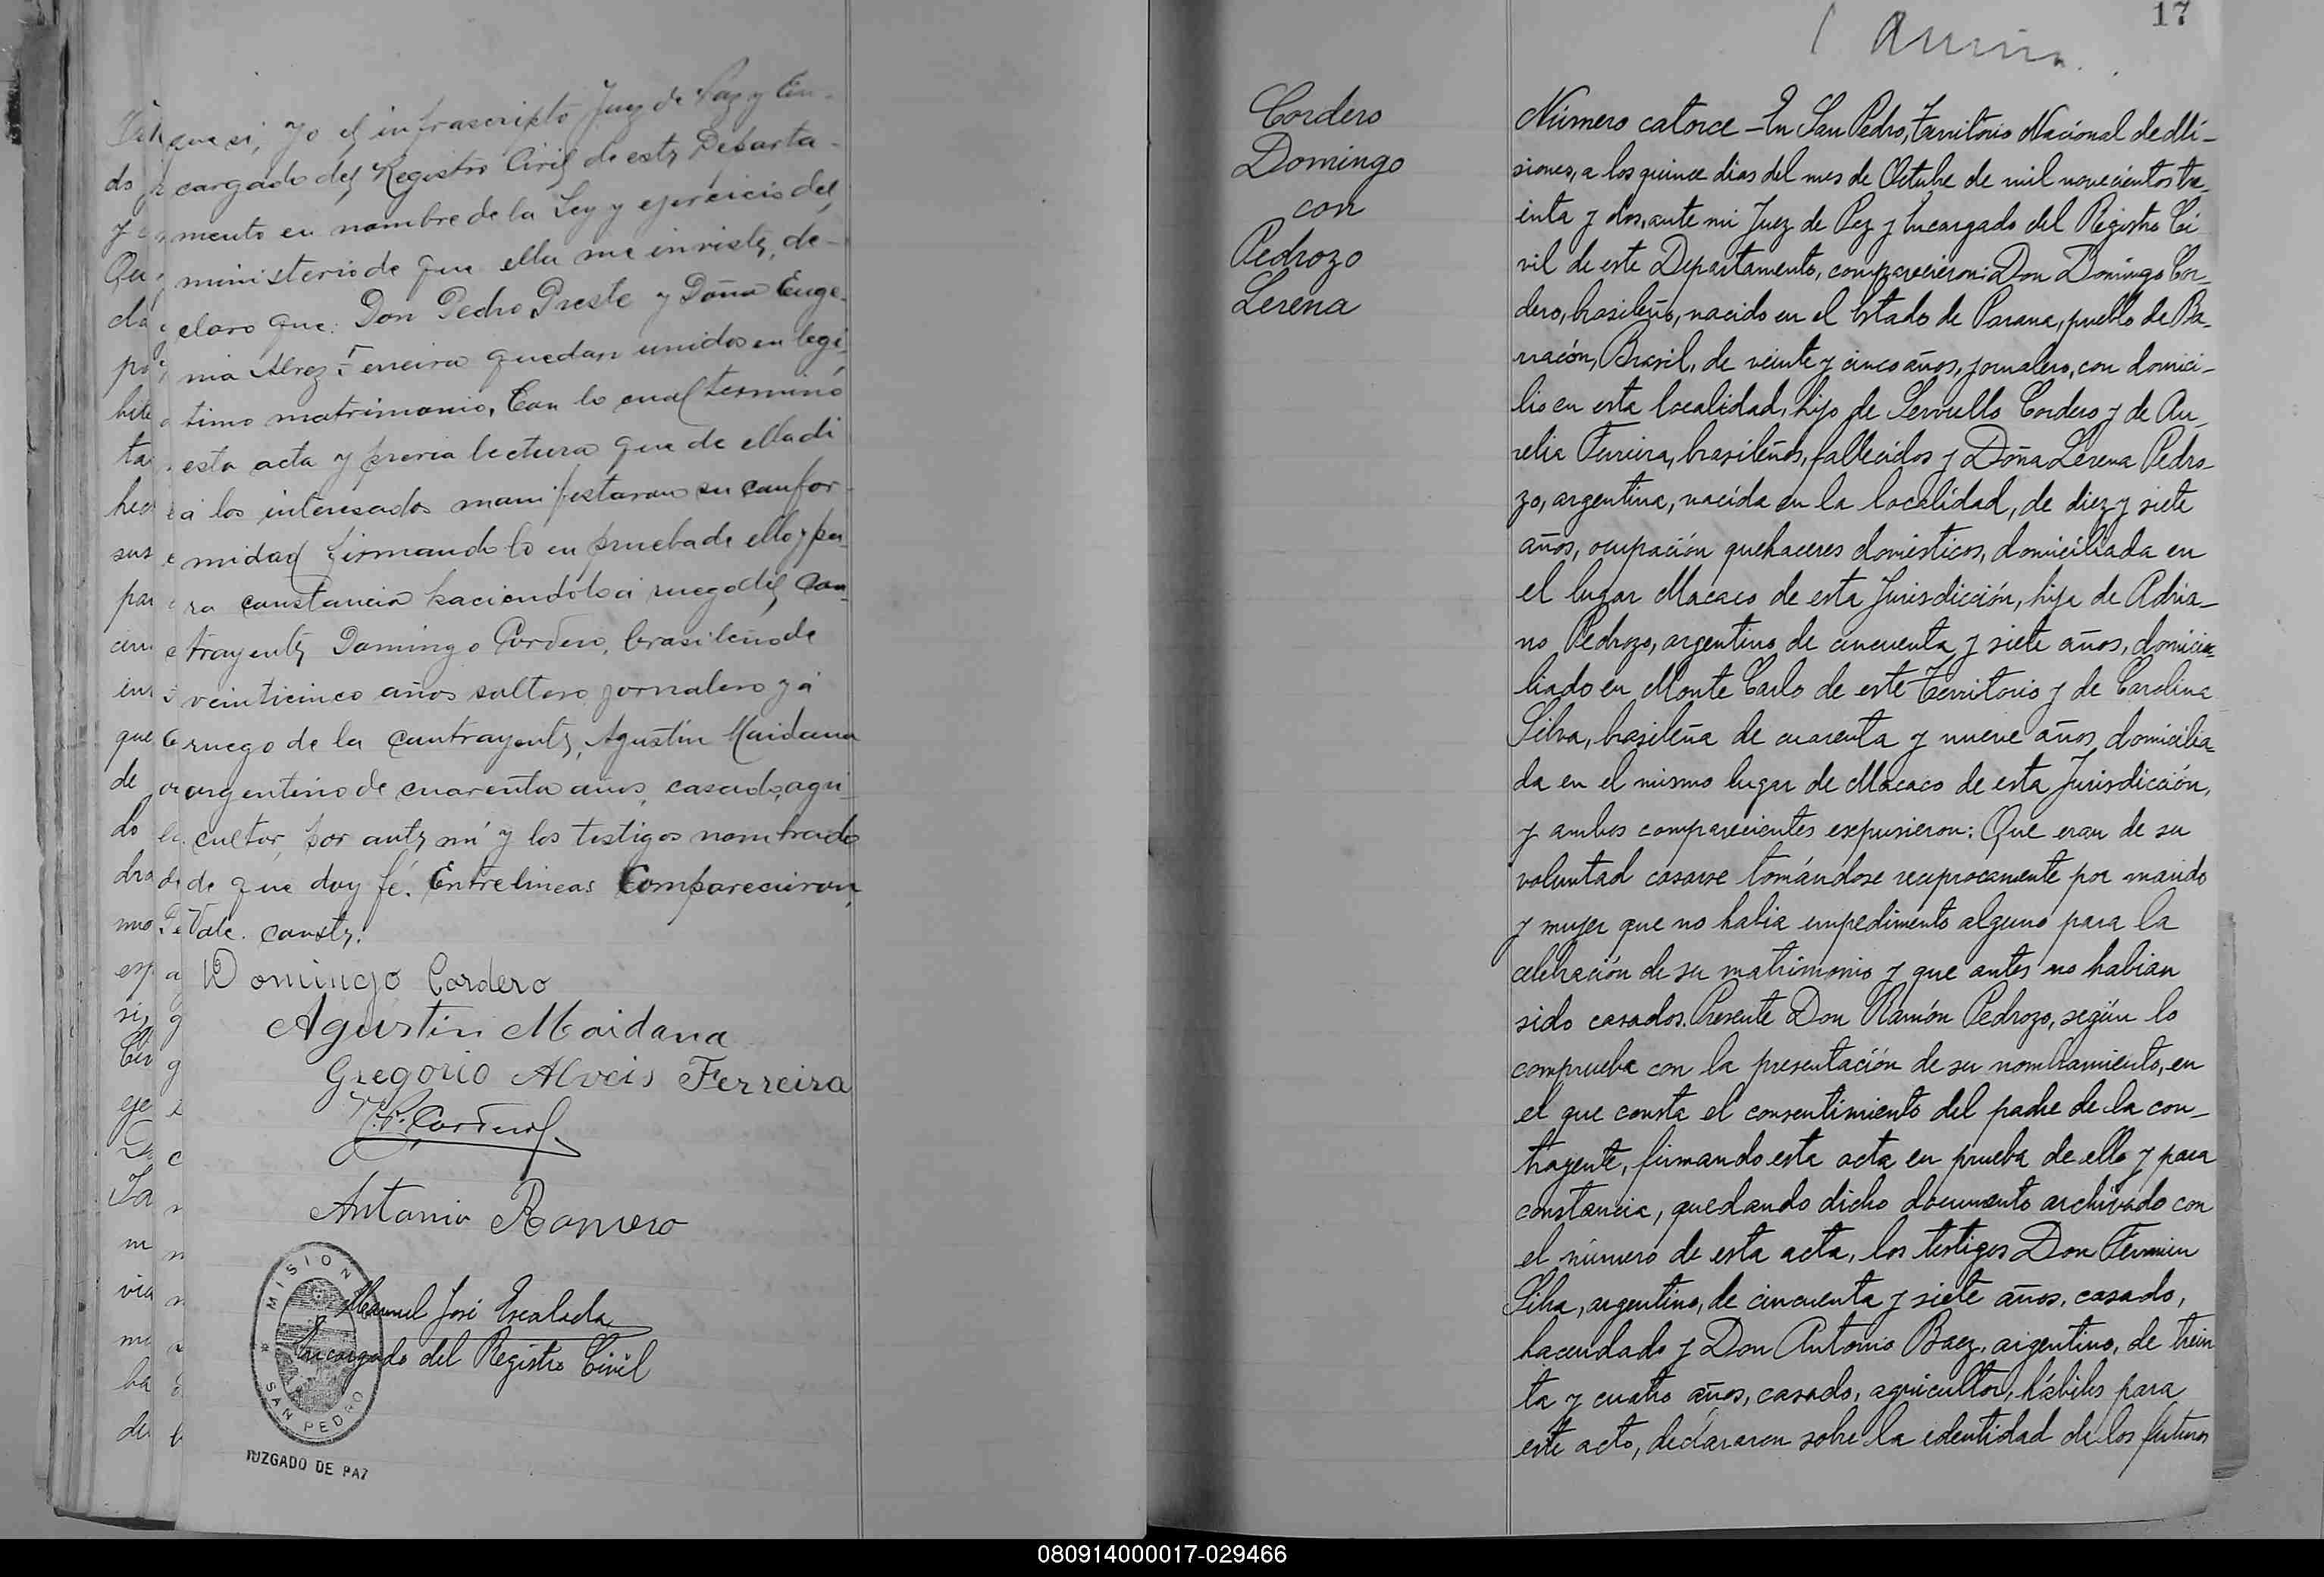 que si, yo el infrascripto Juez de Paz y En-
cargado del Registro Civil de este Departa-
mento en nombre de la Ley y ejercicio del
ministerio de que ella me inviste, de-
claro que: Don Pedro Preste y Doña Euge-
nia Alvez Ferreira quedan unidos en legi-
timo matrimonio. Con lo cual terminó
esta acta y previa lectura que de ella di
á los interesados manifestaron su confor-
midad firmandolo en prueba de ello y pa-
ra constancia haciendolo á ruego del con-
trayente Domingo Cordero, brasileño de
veinticinco años soltero jornalero y á
ruego de la contrayente, Agustin Maidana
argentino de cuarenta años, casado, agri-
cultor, por ante mí y los testigos nombrados
de que doy fé. Entrelineas Comparecieron,
Vale. conste.
Domingo Cordero
Agustin Maidana
Gregorio Alveis Ferreira
Antonio Romero
Manuel José Escalada
Encargado del Registro Civil
MISIONES
SAN PEDRO
JUZGADO DE PAZ
17
Cordero
Domingo
con
Pedrozo
Lerena
Número catorce - En San Pedro, Territorio Nacional de Mi-
siones, a los quince dias del mes de Octubre de mil novecientos tre-
inta y dos, ante mi Juez de Paz y Encargado del Registro Ci
vil de este Departamento, comparecieron: Don Domingo Cor-
dero, brasileño, nacido en el Estado de Parana, pueblo de Ba-
rración, Brasil, de veinte y cinco años, jornalero, con domici-
lio en esta localidad, hijo de Servullo Cordero y de Au-
relia Ferreira, brasileños, fallecidos y Doña Lerena Pedro-
zo, argentina, nacida en la localidad, de diez y siete
años, ocupación quehaceres domésticos, domiciliada en
el lugar Macaco de esta Jurisdicción, hija de Adria-
no Pedrozo, argentino de cincuenta y siete años, domici-
liado en Monte Carlo de este Territorio y de Carolina
Silva, brasileña de cuarenta y nueve años, domicilia-
da en el mismo lugar de Macaco de esta Jurisdicción,
y ambos comparecientes expusieron: Que eran de su
voluntad casarse tomándose reciprocamente por marido
y mujer que no habia impedimento alguno para la
celebración de su matrimonio y que antes no habian
sido casados. Presente Don Ramón Pedrozo, según lo
comprueba con la presentación de su nombramiento, en
el que consta el consentimiento del padre de la con-
trayente, firmando esta acta en prueba de ello y para
constancia, quedando dicho documento archivado con
el número de esta acta, los testigos Don Fermin
Silva, argentino, de cincuenta y siete años, casado,
hacendado y Don Antonio Baez, argentino, de trein
ta y cuatro años, casado, agricultor, hábiles para
este acto, declararon sobre la identidad de los futuros
080914000017-029466